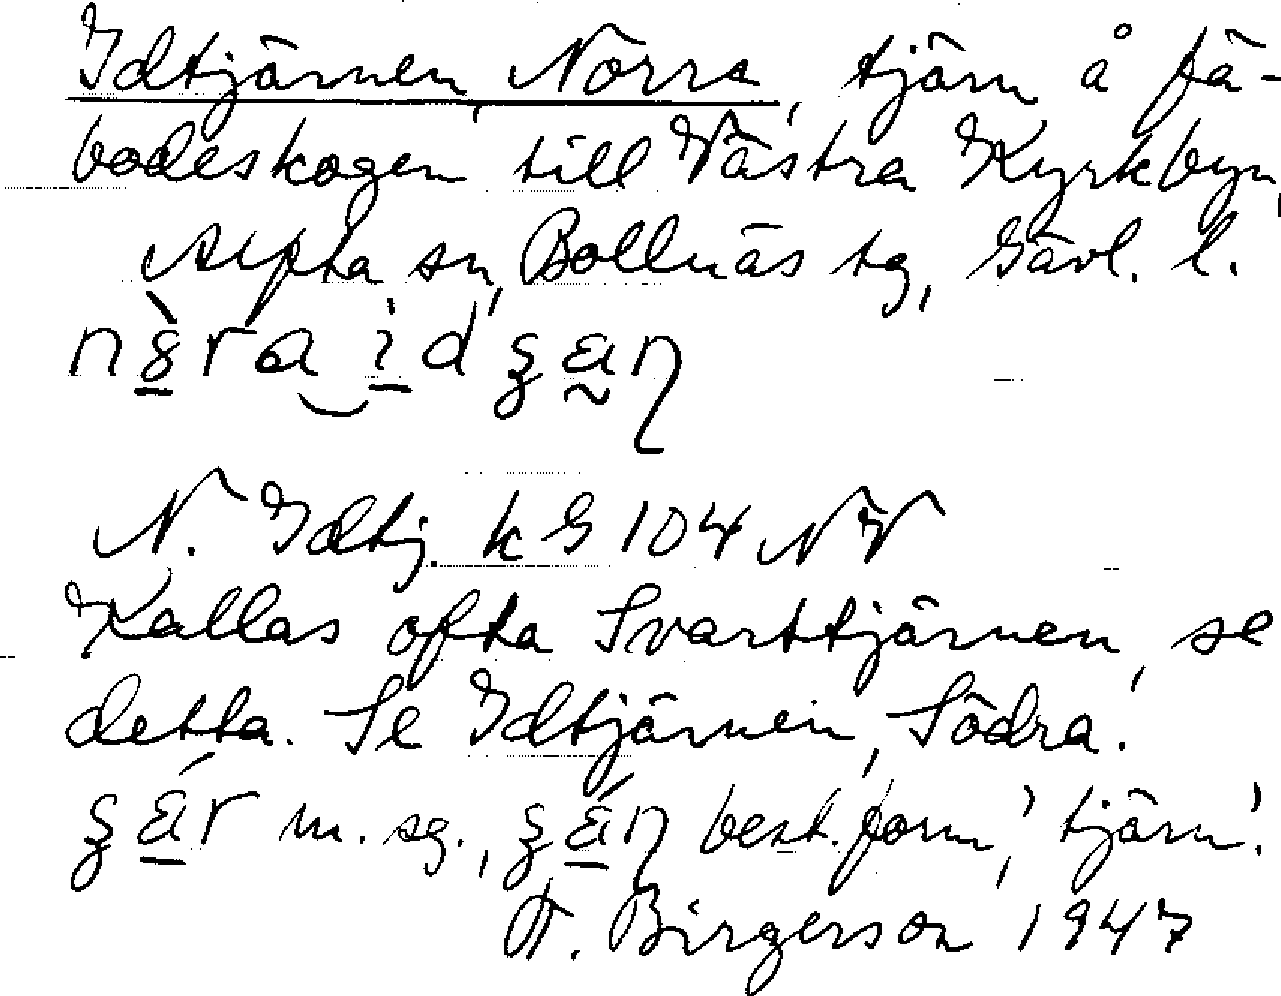 Idtjärnen, Norra, tjärn å fä-
bodeskogen till Västra Kyrkbyn,
Alfta sn, Bollnäs tg, Gävl. l.
N. Idtj. k G 104 NV
Kallas ofta Svarttjärnen, se
detta. Se Idtjärnen, Södra.
m. sg., best. form, 'tjärn'.
Birgerson 1947